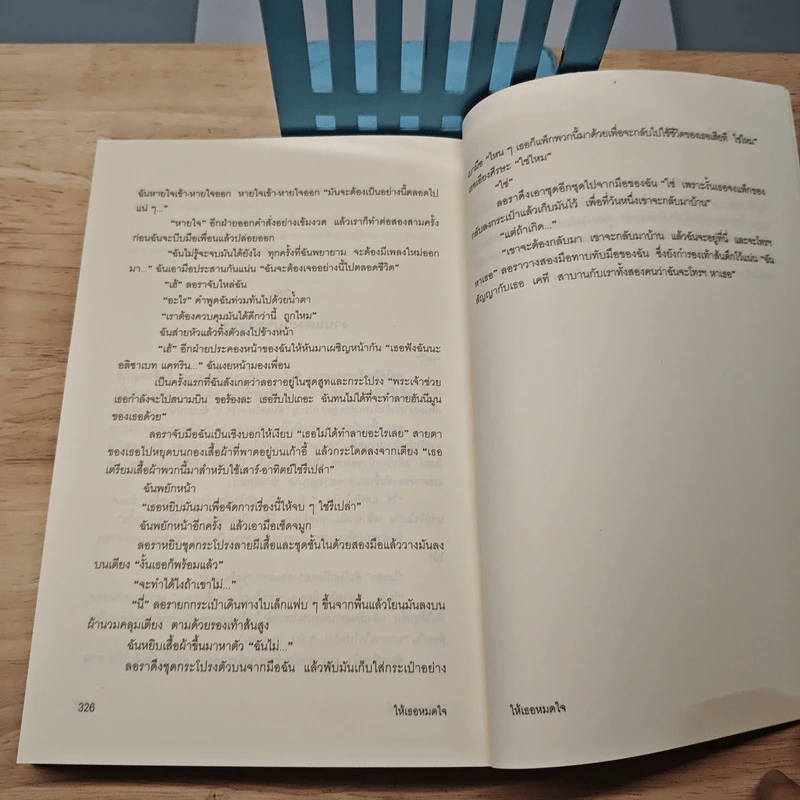 ฉันหายใจเข้า-หายใจออก หายใจเข้า-หายใจออก “มันจะต้องเป็นอย่างนี้ตลอดไป
แน่ ๆ...”
“หายใจ” อีกฝ่ายออกคำสั่งอย่างเข้มงวด แล้วเราก็ทำต่อสองสามครั้ง
ก่อนฉันจะบีบมือเพื่อนแล้วปล่อยออก
“ฉันไม่รู้จะจบมันได้ยังไง ทุกครั้งที่ฉันพยายาม จะต้องมีเพลงใหม่ออก
มา...” ฉันเอามือประสานกันแน่น “ฉันจะต้องเจออย่างนี้ไปตลอดชีวิต”
“เฮ้” ลอราจับไหล่ฉัน
“อะไร” คำพูดฉันท่วมท้นไปด้วยน้ำตา
“เราต้องควบคุมมันได้ดีกว่านี้ ถูกไหม”
ฉันส่ายหัวแล้วทิ้งตัวลงไปข้างหน้า
“เฮ้” อีกฝ่ายประคองหน้าของฉันให้หันมาเผชิญหน้ากัน “เธอฟังฉันนะ
อลิซาเบท แคทริน...” ฉันเงยหน้ามองเพื่อน
เป็นครั้งแรกที่ฉันสังเกตว่าลอราอยู่ในชุดสูทและกระโปรง “พระเจ้าช่วย
เธอกำลังจะไปสนามบิน ขอร้องละ เธอรีบไปเถอะ ฉันทนไม่ได้ที่จะทำลายฮันนีมูน
ของเธอด้วย”
ลอราจับมือฉันเป็นเชิงบอกให้เงียบ “เธอไม่ได้ทำลายอะไรเลย” สายตา
ของเธอไปหยุดบนกองเสื้อผ้าที่พาดอยู่บนเก้าอี้ แล้วกระโดดลงจากเตียง “เธอ
เตรียมเสื้อผ้าพวกนี้มาสำหรับใช้เสาร์-อาทิตย์ใช่รึเปล่า”
ฉันพยักหน้า
“เธอหยิบมันมาเพื่อจัดการเรื่องนี้ให้จบ ๆ ใช่รึเปล่า”
ฉันพยักหน้าอีกครั้ง แล้วเอามือเช็ดจมูก
ลอราหยิบชุดกระโปรงลายผีเสื้อและชุดชั้นในด้วยสองมือแล้ววางมันลง
บนเตียง “งั้นเธอก็พร้อมแล้ว”
“จะทำได้ไงถ้าเขาไม่...”
“นี่” ลอรายกกระเป๋าเดินทางใบเล็กแฟบ ๆ ขึ้นจากพื้นแล้วโยนมันลงบน
ผ้านวมคลุมเตียง ตามด้วยรองเท้าส้นสูง
ฉันหยิบเสื้อผ้าขึ้นมาหาตัว “ฉันไม่...”
ลอราดึงชุดกระโปรงตัวบนจากมือฉัน แล้วพับมันเก็บใส่กระเป๋าอย่าง
326
ให้เธอหมดใจ
“ไหน ๆ เธอก็แพ็กพวกนี้มาด้วยเพื่อจะกลับไปใช้ชีวิตของเธอเสียที ใช่ไหม”
“ใช่ไหม”
“ใช่”
ลอราดึงเอาชุดอีกชุดไปจากมือของฉัน “ใช่ เพราะงั้นเธอจงแพ็กของ
กลับลงกระเป๋าแล้วเก็บมันไว้ เพื่อที่วันหนึ่งเขาจะกลับมาบ้าน”
“แต่ถ้าเกิด...”
“เขาจะต้องกลับมา เขาจะกลับมาบ้าน แล้วฉันจะอยู่ที่นี่ และจะโทรฯ
หาเธอ” ลอราวางสองมือทาบทับมือของฉัน ซึ่งยังกำรองเท้าส้นตึกไว้แน่น “ฉัน
สัญญากับเธอ เคที สาบานกับเราทั้งสองคนว่าฉันจะโทรฯ หาเธอ”
ให้เธอหมดใจ